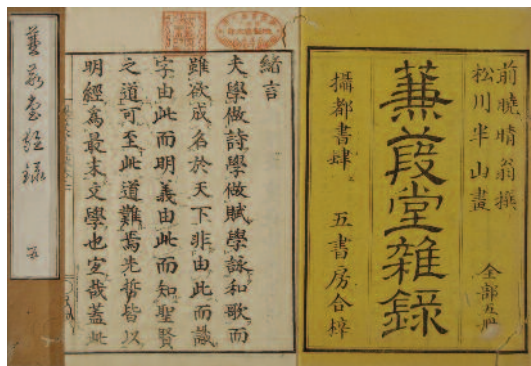 前曉晴翁撰
松川半山畫
全部五冊
蒹葭堂雜錄
攝都書肆 五書房合梓
緒言
夫學做詩學做賦學詠和歌而
雖欲成名於天下非由此而識
字由此而明義由此而知聖賢
之道可至此道難焉先哲皆以
明經為最末文學也宜哉蓋此
蒹葭堂雜録 五